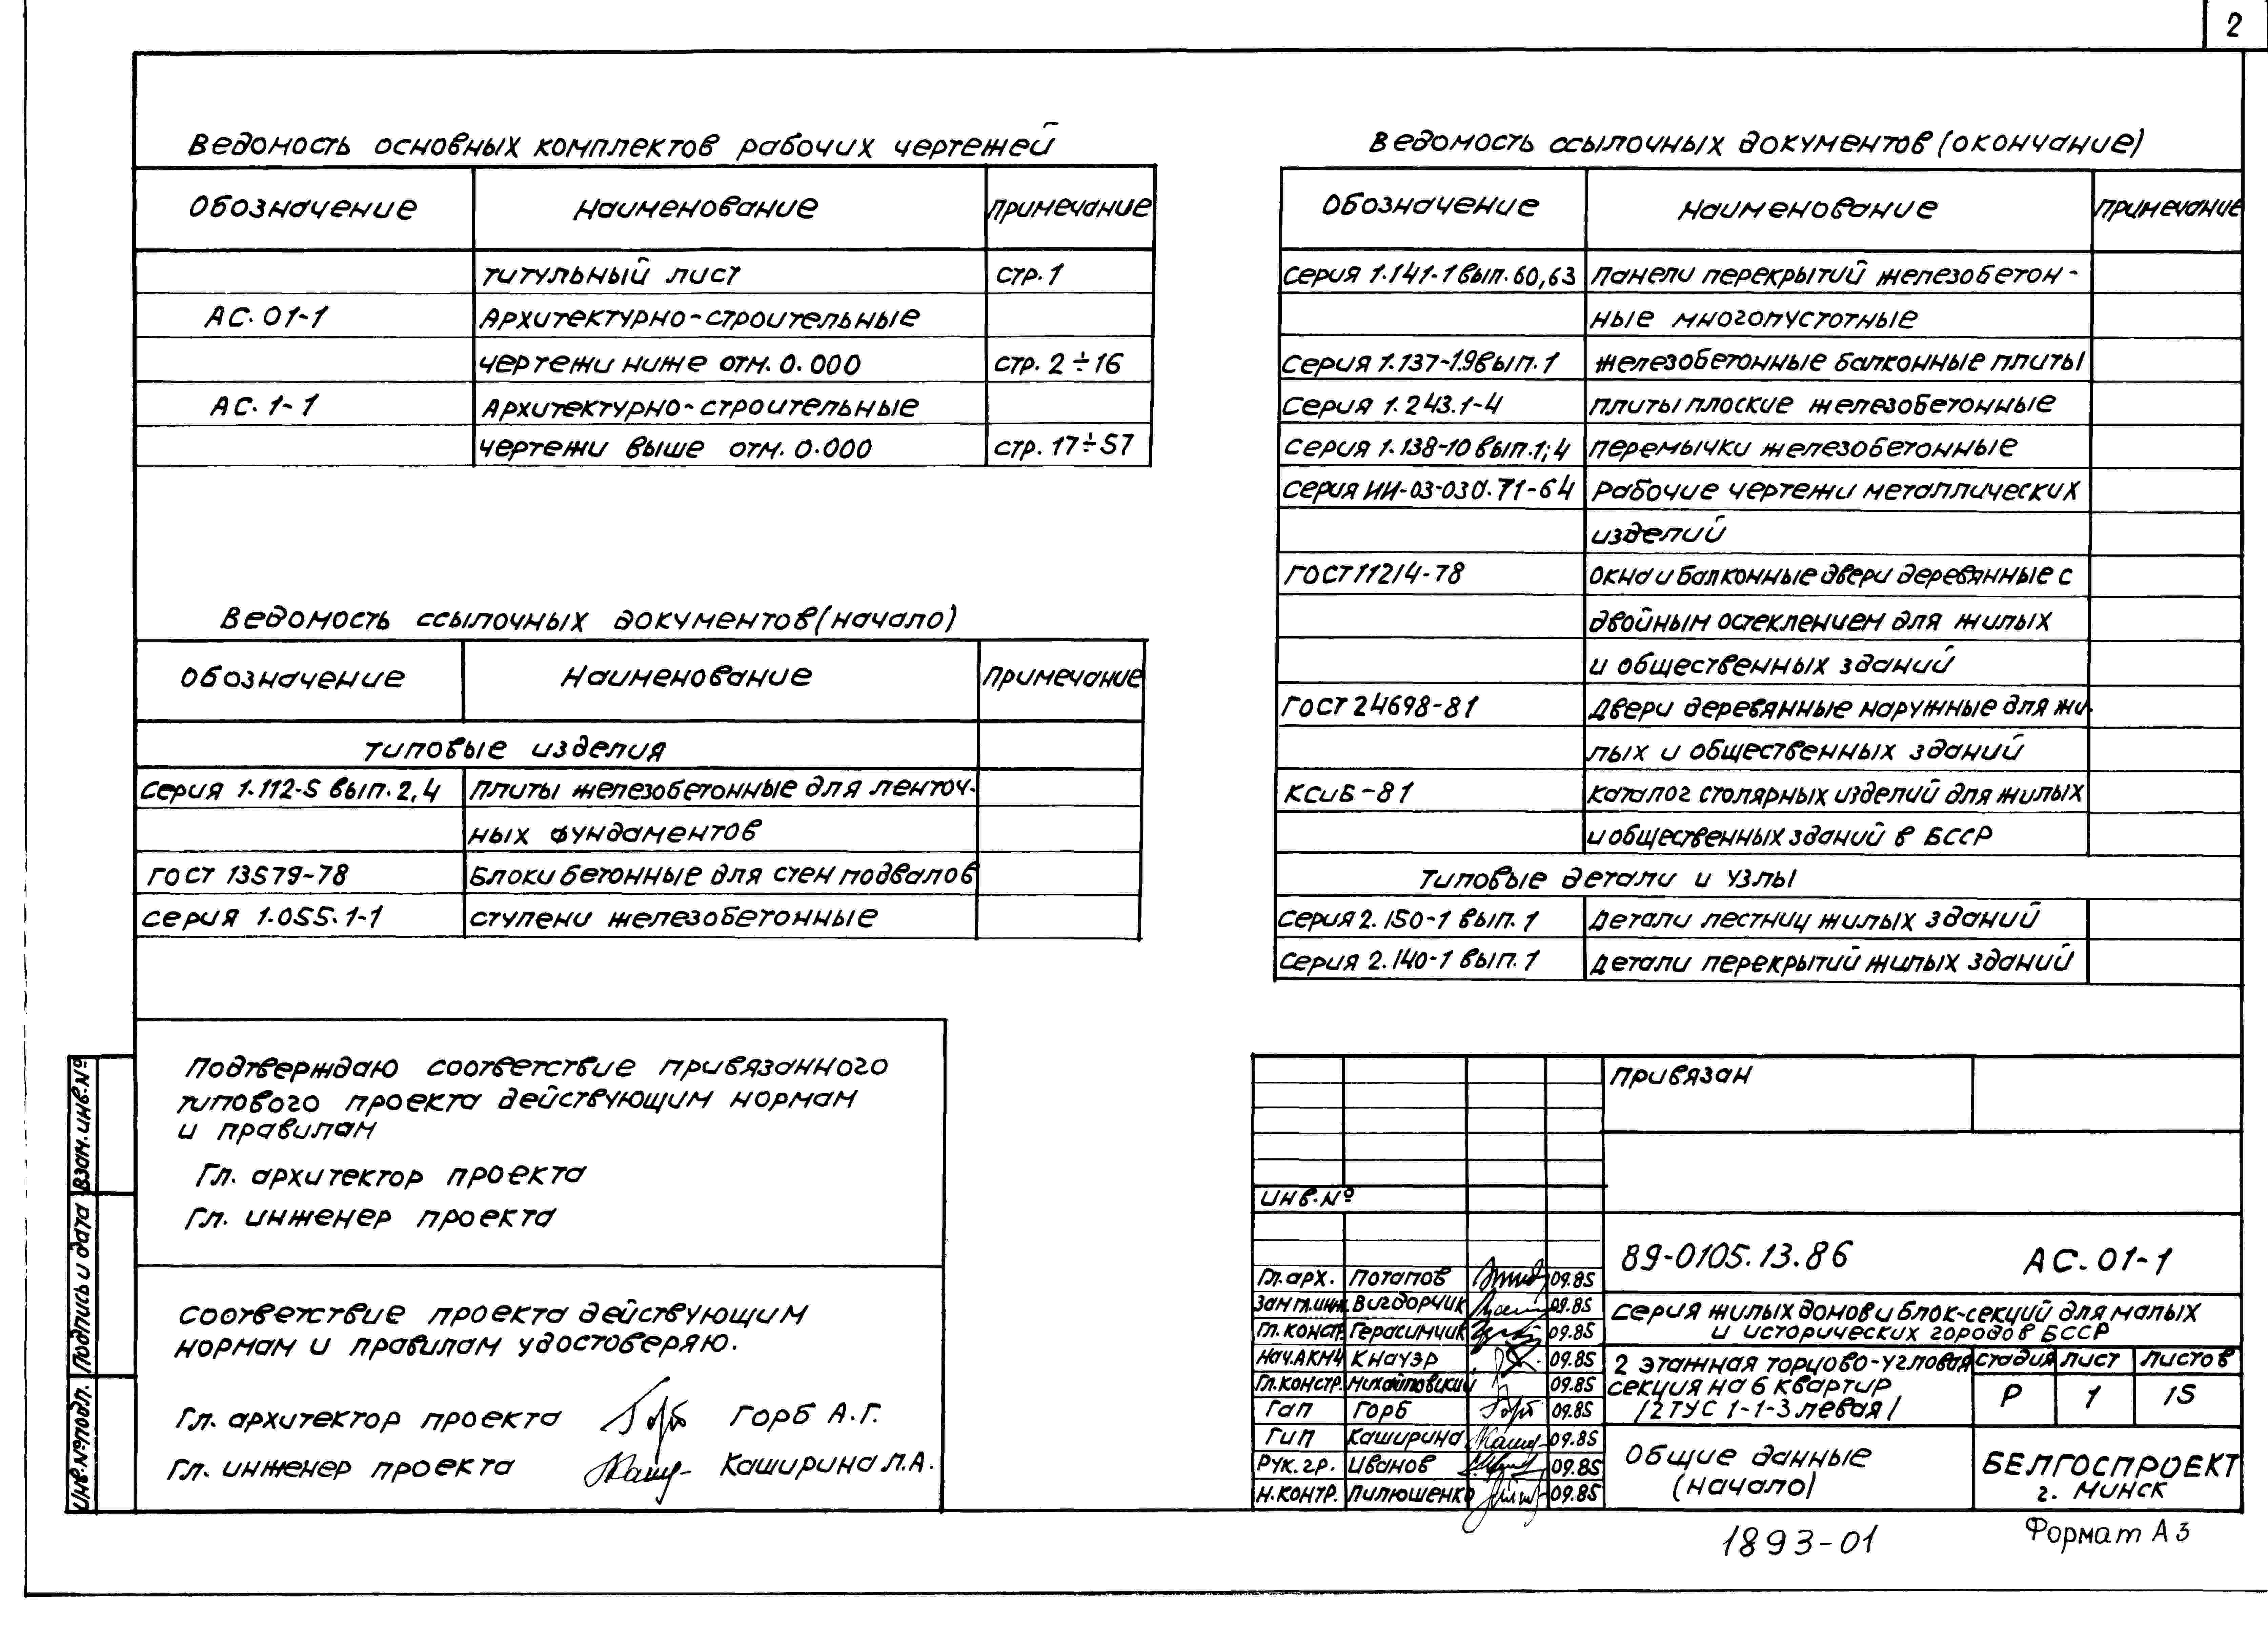 2
Ведомость основных комплектов рабочих чертежей
Обозначение Наименование Примечание
Титульный лист стр. 1
АС. 01-1 Архитектурно-строительные
чертежи ниже отм. 0.000 стр. 2÷16
АС. 1-1 Архитектурно-строительные
чертежи выше отм. 0.000 стр. 17÷57
Ведомость ссылочных документов (начало)
Обозначение Наименование Примечание
Типовые изделия
Серия 1.112-5 вып. 2,4 Плиты железобетонные для ленточ-
ных фундаментов
ГОСТ 13579-78 Блоки бетонные для стен подвалов
Серия 1.055.1-1 Ступени железобетонные
Ведомость ссылочных документов (окончание)
Обозначение Наименование Примечание
Серия 1.141-1 вып. 60,63 Панели перекрытий железобетон-
ные многопустотные
Серия 1.137-1.9 вып. 1 Железобетонные балконные плиты
Серия 1.243.1-4 Плиты плоские железобетонные
Серия 1.138-10 вып. 1; 4 Перемычки железобетонные
Серия ИИ-03-03 71-64 Рабочие чертежи металлических
изделий
ГОСТ 11214-78 Окна и балконные двери деревянные с
двойным остеклением для жилых
и общественных зданий
ГОСТ 24698-81 Двери деревянные наружные для жи-
лых и общественных зданий
КСиБ-81 Каталог столярных изделий для жилых
и общественных зданий в БССР
Типовые детали и узлы
Серия 2.150-1 вып. 1 Детали лестниц жилых зданий
Серия 2.140-1 вып. 1 Детали перекрытий жилых зданий
Подтверждаю соответствие привязанного
типового проекта действующим нормам
и правилам
Гл. архитектор проекта
Гл. инженер проекта
Соответствие проекта действующим
нормам и правилам удостоверяю.
Гл. архитектор проекта Горб А.Г.
Гл. инженер проекта Каширина Л.А.
Взам. инв. №
Подпись и дата
Инв. № подл.
Привязан
Инв. №
89-0105.13.86 АС. 01-1
Гл. арх. Потапов 09.85
Зам гл. инж. Вигдорчик 09.85
Гл. констр. Герасимчик 09.85
Нач. АКМ4 Кнауэр 09.85
Гл. констр. Михайловский 09.85
ГАП Горб 09.85
ГИП Каширина 09.85
Рук. гр. Иванов 09.85
Н. контр. Пилюшенко 09.85
Серия жилых домов и блок-секций для малых
и исторических городов БССР
2 этажная торцово-угловая
секция на 6 квартир
/2 ТУС 1-1-3 левая/
Стадия Лист Листов
Р 1 15
Общие данные
(начало)
БЕЛГОСПРОЕКТ
г. Минск
1893-01
Формат А3